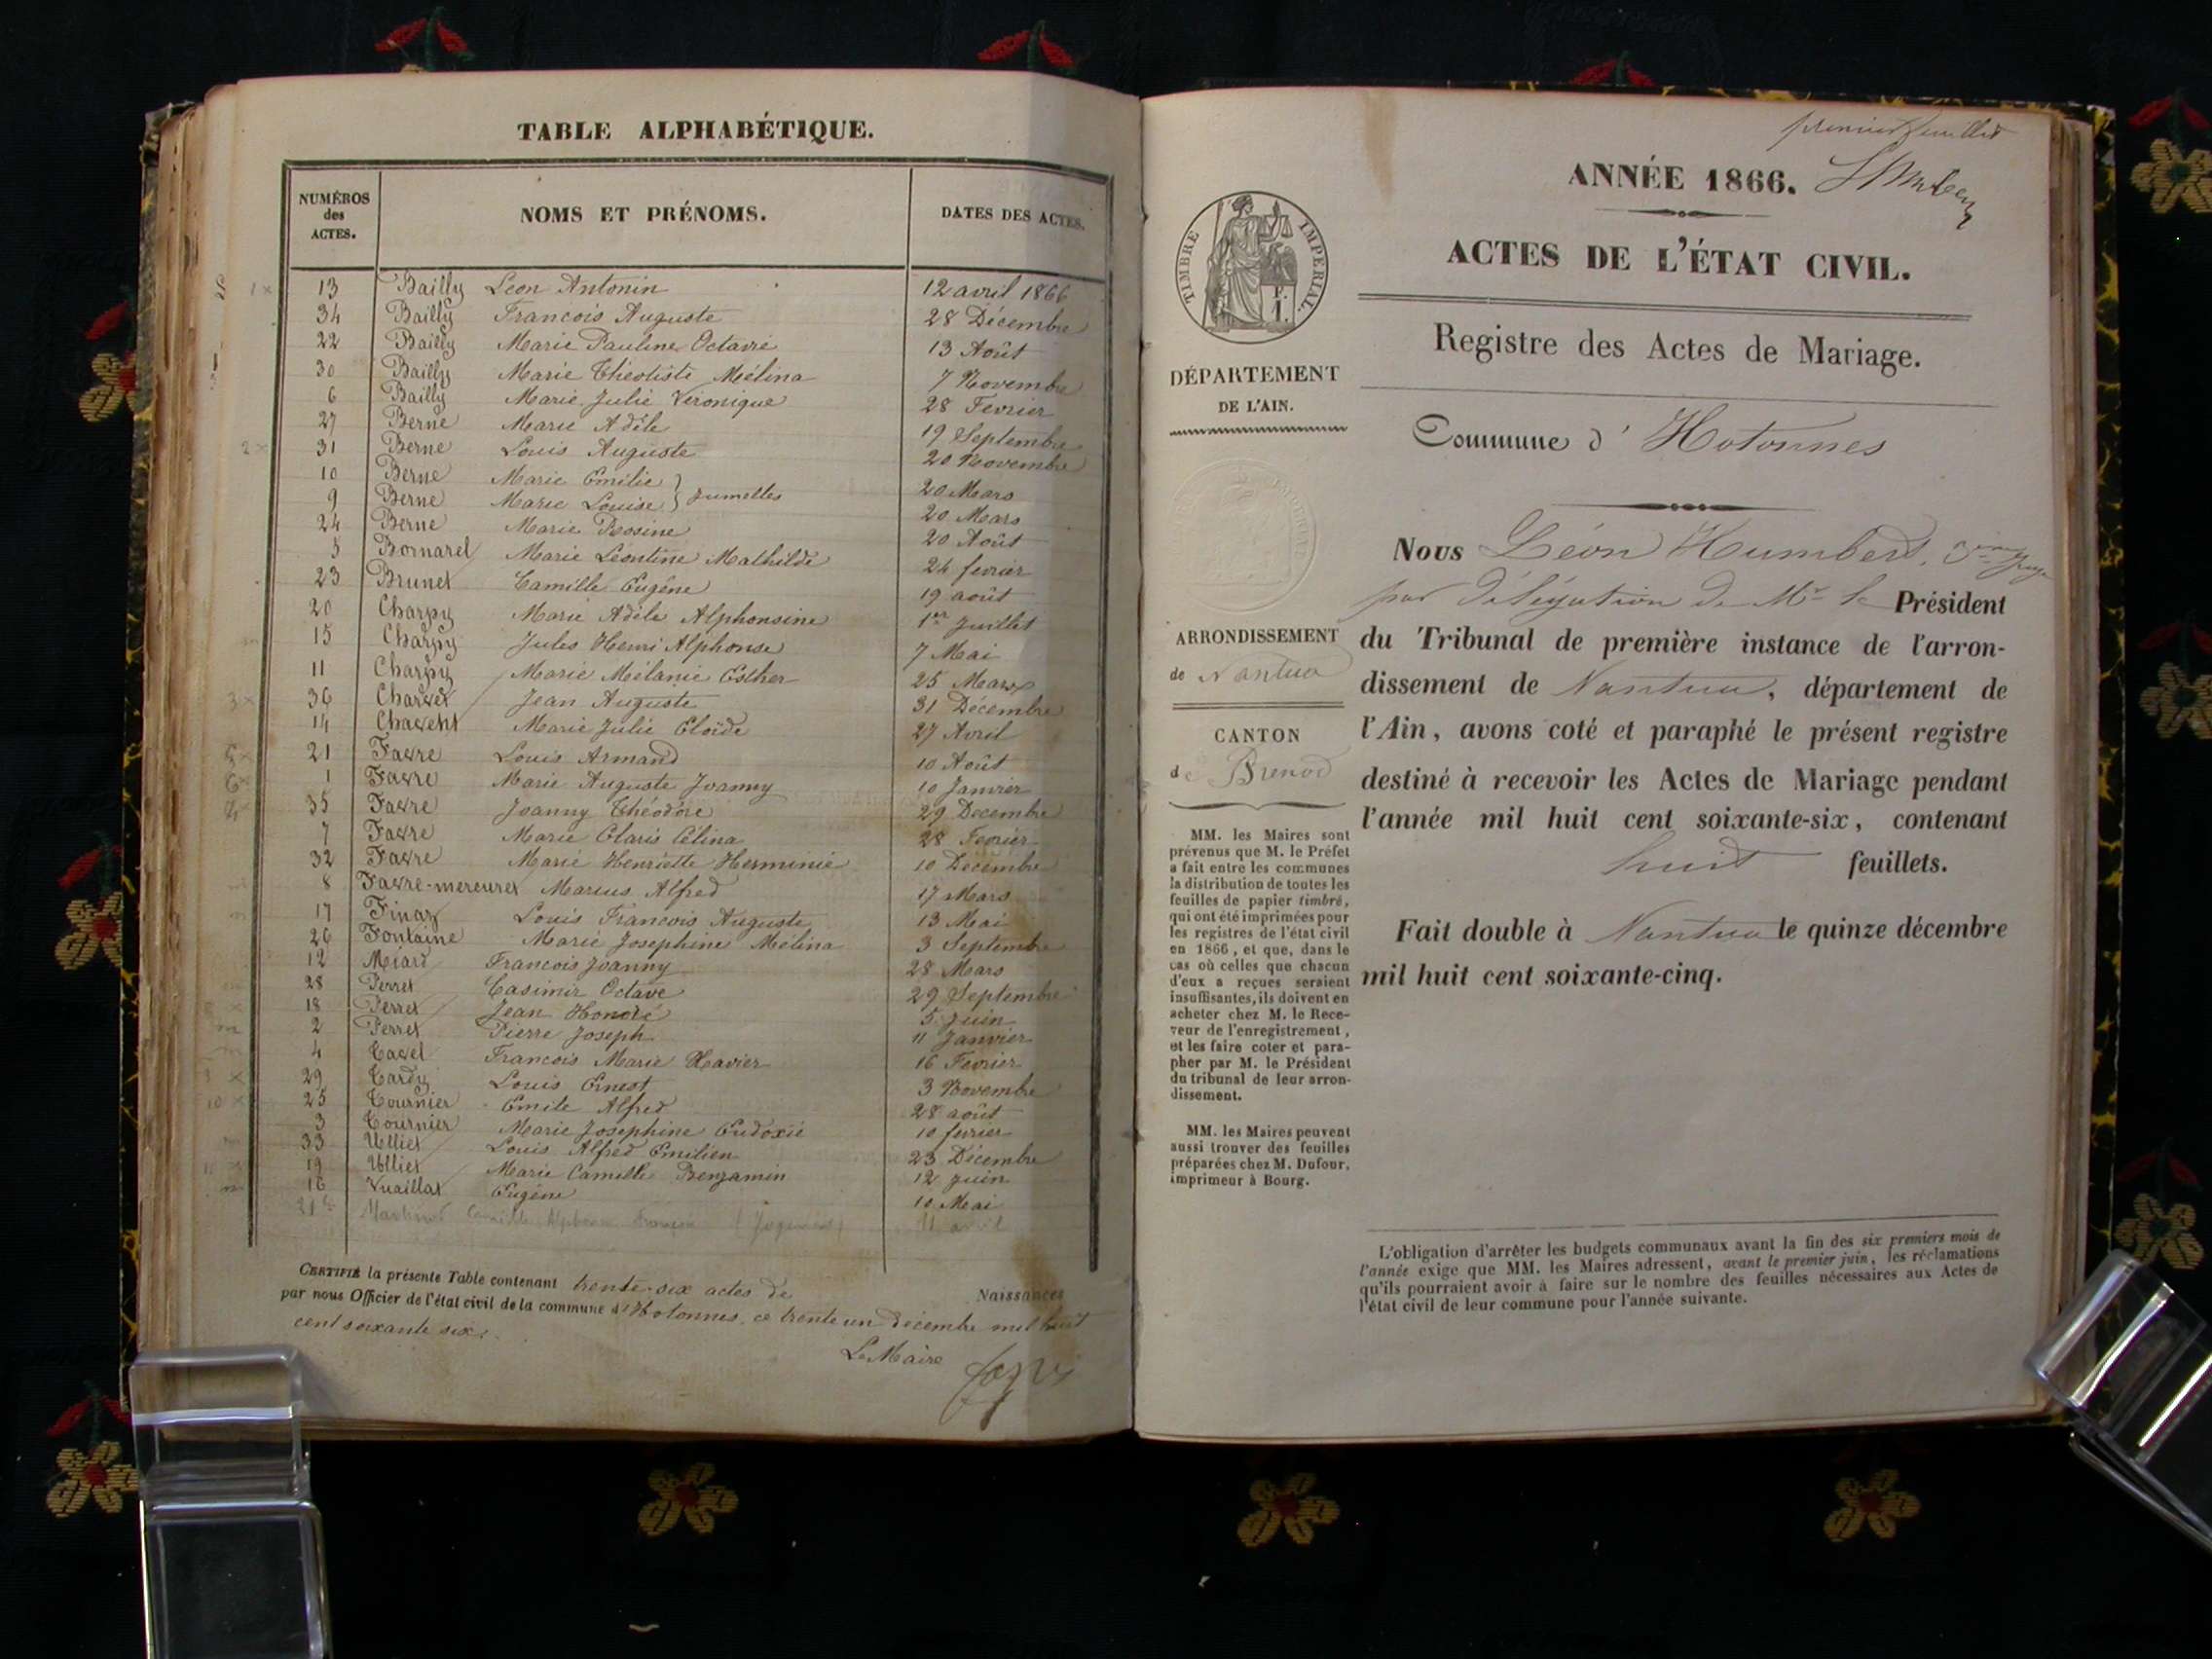 TABLE ALPHABÉTIQUE.
NUMÉROS des ACTES. NOMS ET PRÉNOMS. DATES DES ACTES.
13 Bailly Léon Antonin 12 avril 1866
34 Bailly François Auguste 28 Décembre
22 Bailly Marie Pauline Octavie 13 Août
30 Bailly Marie Théotiste Mélina 7 Novembre
6 Bailly Marie Julie Véronique 28 Fevrier
27 Berne Marie Adèle 19 Septembre
31 Berne Louis Auguste 20 Novembre
10 Berne Marie Emilie } 20 Mars
9 Berne Marie Louise } Jumelles 20 Mars
24 Berne Marie Rosine 20 Août
5 Bornarel Marie Léontine Mathilde 24 fevrier
23 Brunet Camille Eugène 19 août
20 Charpy Marie Adèle Alphonsine 1er Juillet
15 Charpy Jules Henri Alphonse 7 Mai
11 Charpy Marie Mélanie Esther 25 Mars
36 Charvet Jean Auguste 31 Décembre
14 Chavent Marie Julie Eloïde 27 Avril
21 Favre Louis Armand 10 Août
1 Favre Marie Auguste Joanny 10 Janvier
35 Favre Joanny Théodore 29 Decembre
7 Favre Marie Claris Célina 28 Fevrier
32 Favre Marie Henriette Herminie 10 Décembre
8 Favre-mercuret Marius Alfred 17 Mars
17 Finaz Louis François Auguste 13 Mai
26 Fontaine Marie Josephine Melina 3 Septembre
12 Miard François Joanny 28 Mars
28 Perret Casimir Octave 29 Septembre
18 Perret Jean Honoré 5 Juin
2 Perret Pierre Joseph 11 Janvier
4 Cavet François Marie Xavier 16 Fevrier
29 Tardy Louis Ernest 3 Novembre
25 Tournier Emile Alfred 28 août
3 Tournier Marie Josephine Eudoxie 10 fevrier
33 Ulliet Louis Alfred Emilien 23 Décembre
19 Ulliet Marie Camille Benjamin 12 Juin
16 Vuaillat Eugène 10 Mai
Camille 11 avril
CERTIFIÉ la présente Table contenant trente-six actes de Naissances
par nous Officier de l'état civil de la commune d'Hotonnes, ce trente un décembre mil huit
cent soixante six.
Le Maire
premier feuillet
ANNÉE 1866.
ACTES DE L'ÉTAT CIVIL.
Registre des Actes de Mariage.
Commune d' Hotonnes
TIMBRE IMPÉRIAL.
F.
1.
DÉPARTEMENT
DE L'AIN.
ARRONDISSEMENT
de Nantua
CANTON
de Brenod
MM. les Maires sont
prévenus que M. le Préfet
a fait entre les communes
la distribution de toutes les
feuilles de papier timbré,
qui ont été imprimées pour
les registres de l'état civil
en 1866, et que, dans le
cas où celles que chacun
d'eux a reçues seraient
insuffisantes, ils doivent en
acheter chez M. le Rece-
veur de l'enregistrement,
et les faire coter et para-
pher par M. le Président
du tribunal de leur arron-
dissement.
MM. les Maires peuvent
aussi trouver des feuilles
préparées chez M. Dufour,
imprimeur à Bourg.
Nous Léon Humbert, Juge
par délégation de Mr le Président
du Tribunal de première instance de l'arron-
dissement de Nantua, département de
l'Ain, avons coté et paraphé le présent registre
destiné à recevoir les Actes de Mariage pendant
l'année mil huit cent soixante-six, contenant
huit feuillets.
Fait double à Nantua le quinze décembre
mil huit cent soixante-cinq.
L'obligation d'arrêter les budgets communaux avant la fin des six premiers mois de
l'année exige que MM. les Maires adressent, avant le premier juin, les réclamations
qu'ils pourraient avoir à faire sur le nombre des feuilles nécessaires aux Actes de
l'état civil de leur commune pour l'année suivante.